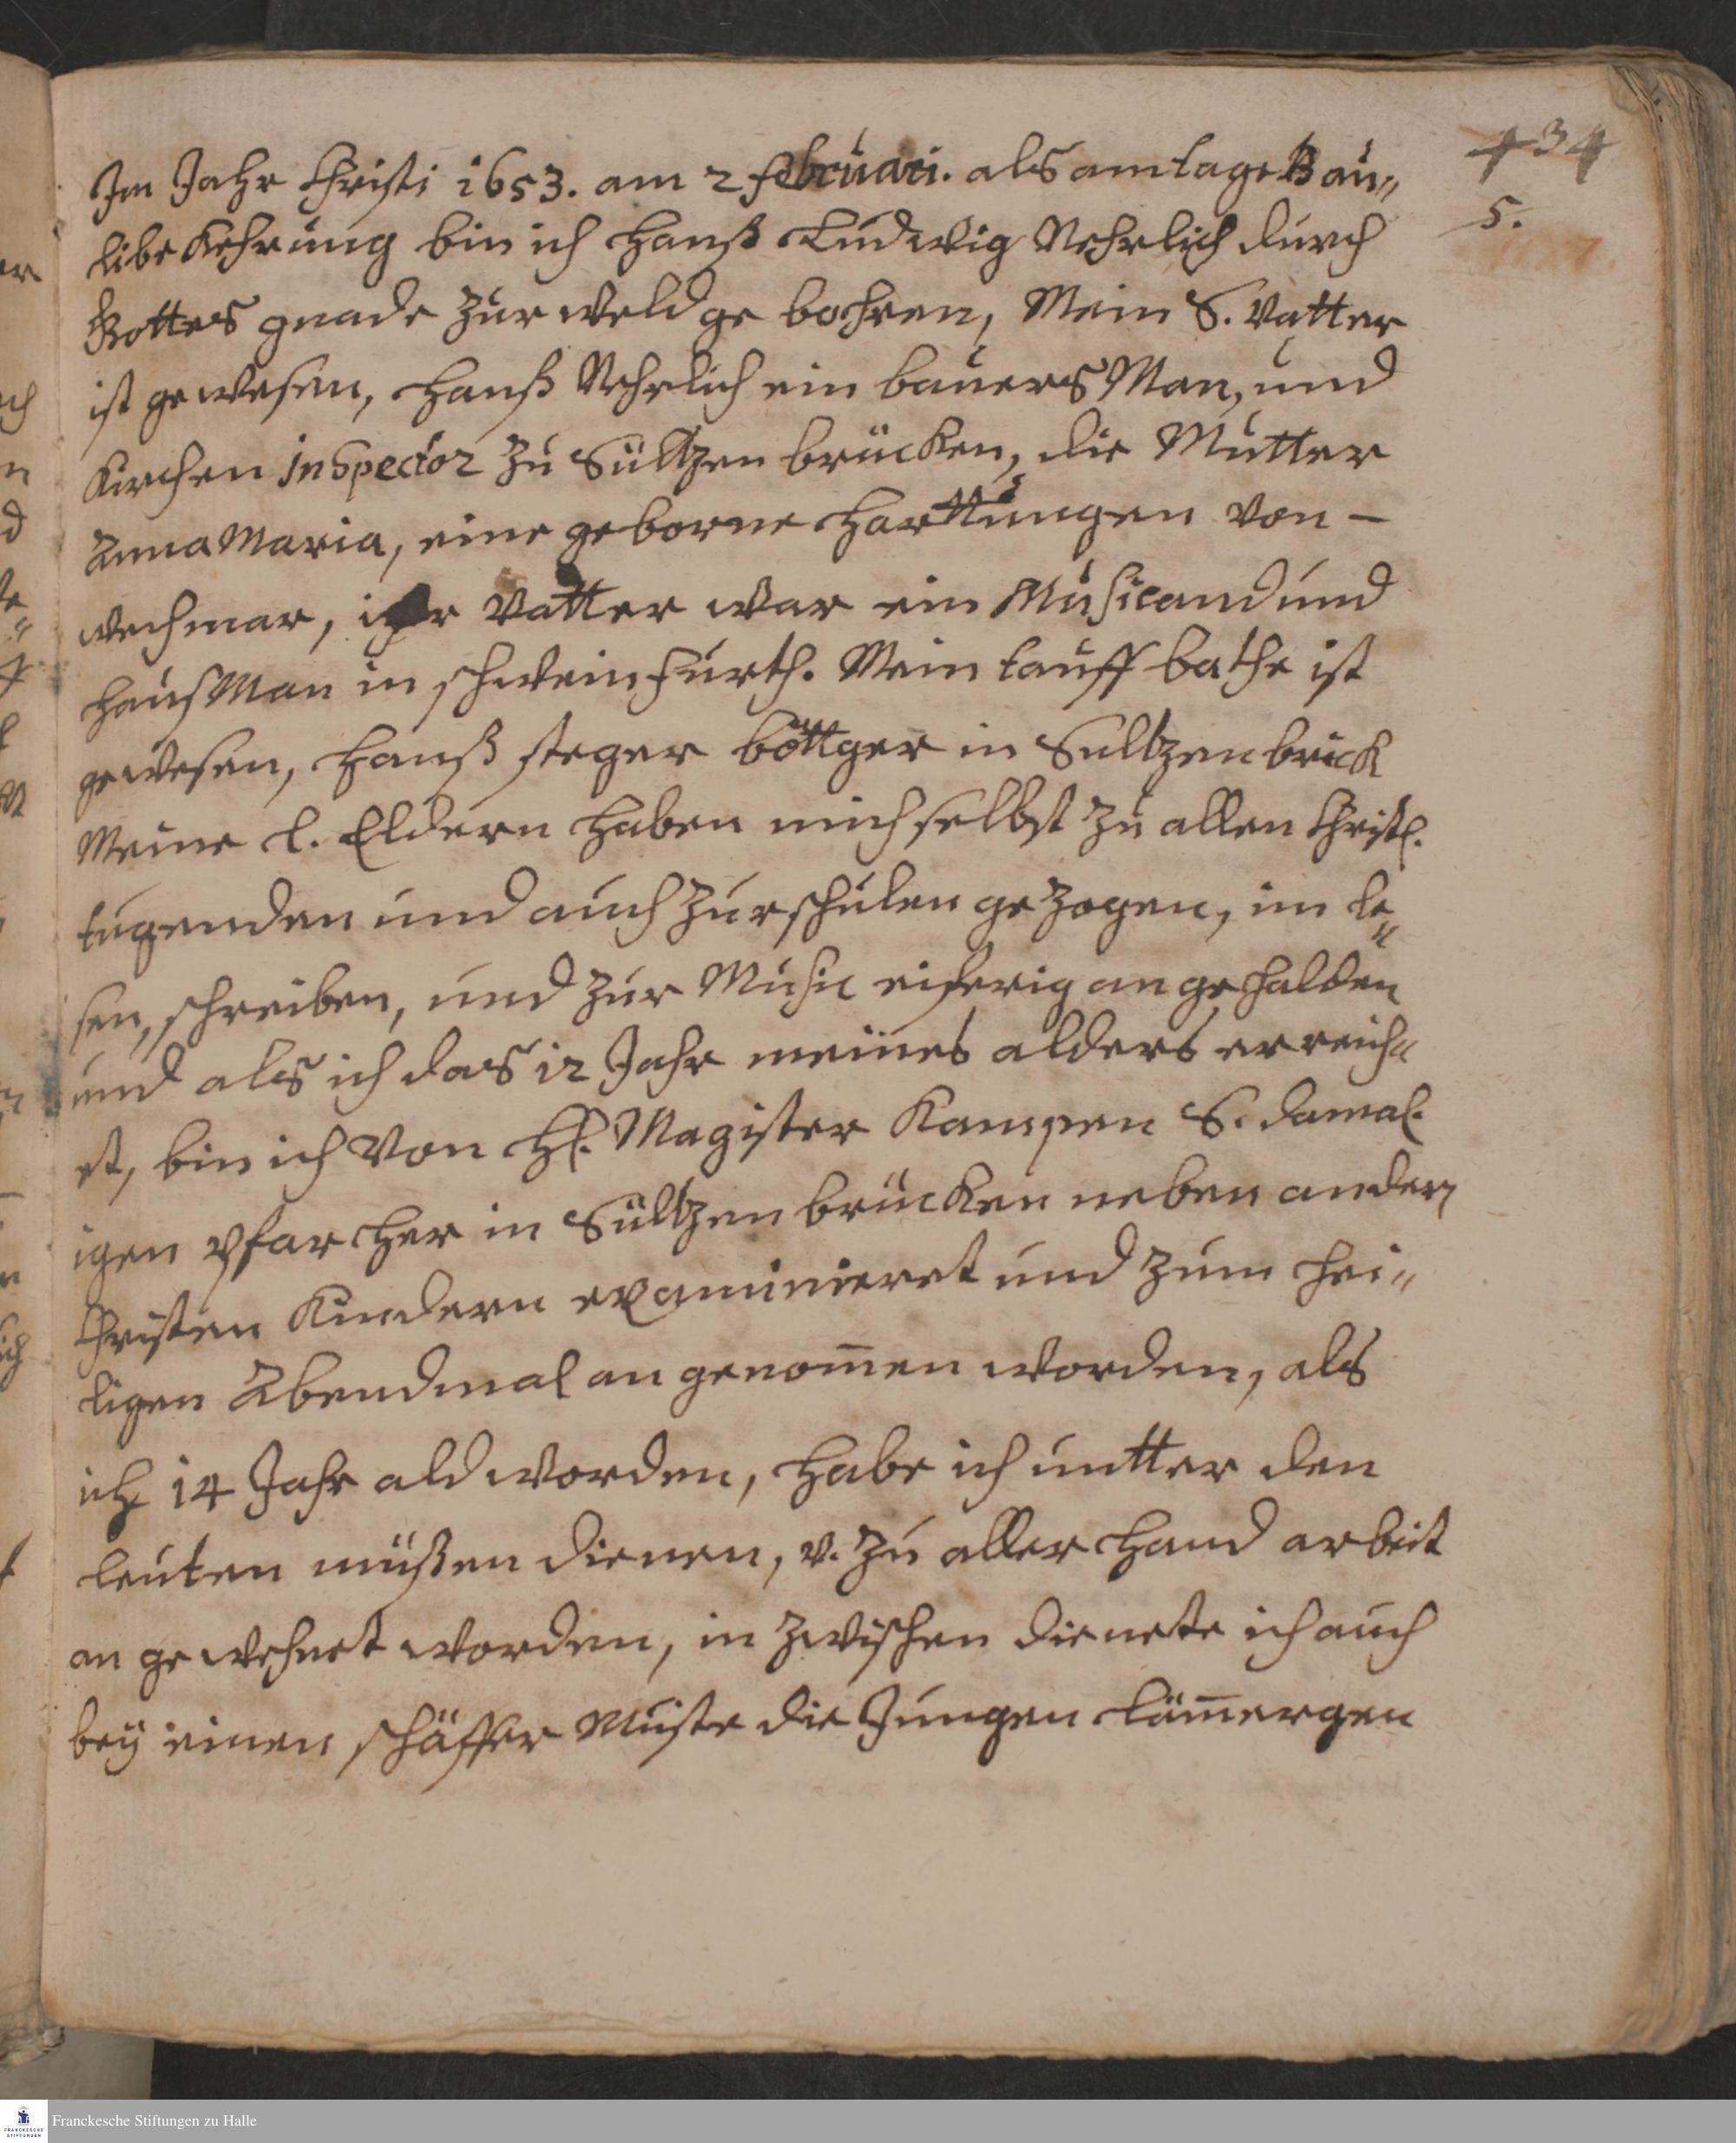 434
5.
Im Jahr Christi 1653. am 2 februari. als am tage Bau„
libekehrung bin ich Hanß Ludwig Nehrlich durch
Gottes gnade zur weld ge bohren, Mein S. Vatter
ist gewesen, Hanß Nehrlich ein bauers Man, und
Kirchen inspector zu Sültzenbrücken, die Mutter
Anna Maria, eine geborne Harttungen von –
wechmar, ihr Vatter war ein Musicand und
HausMan in schweinfurth. Mein tauff bathe ist
gewesen, Hanß steger böttger in Sultzenbrück
Meine l. Eldern haben mich selbst zu allen Christl.
tugenden und auch zur schulen gezogen, im le„
sen, schreiben, und zur Music eiferig an gehalden
und als ich das 12 Jahr meines alders erreich„
et, bin ich von H. Magister Kampen S. damal.
igen pfarrher in Sültzenbrücken neben andern
Christen Kindern examinieret und zum hei„
ligen Abendmal an genom̄en worden, als
ich 14 Jahr ald worden, habe ich untter den
leuten müßen dienen, v. zu aller hand arbeit
an gewehnet worden, in zwischen dienete ich auch
bey einen schäffer Muste die Jungen läm̄ergen
Franckesche Stiftungen zu Halle